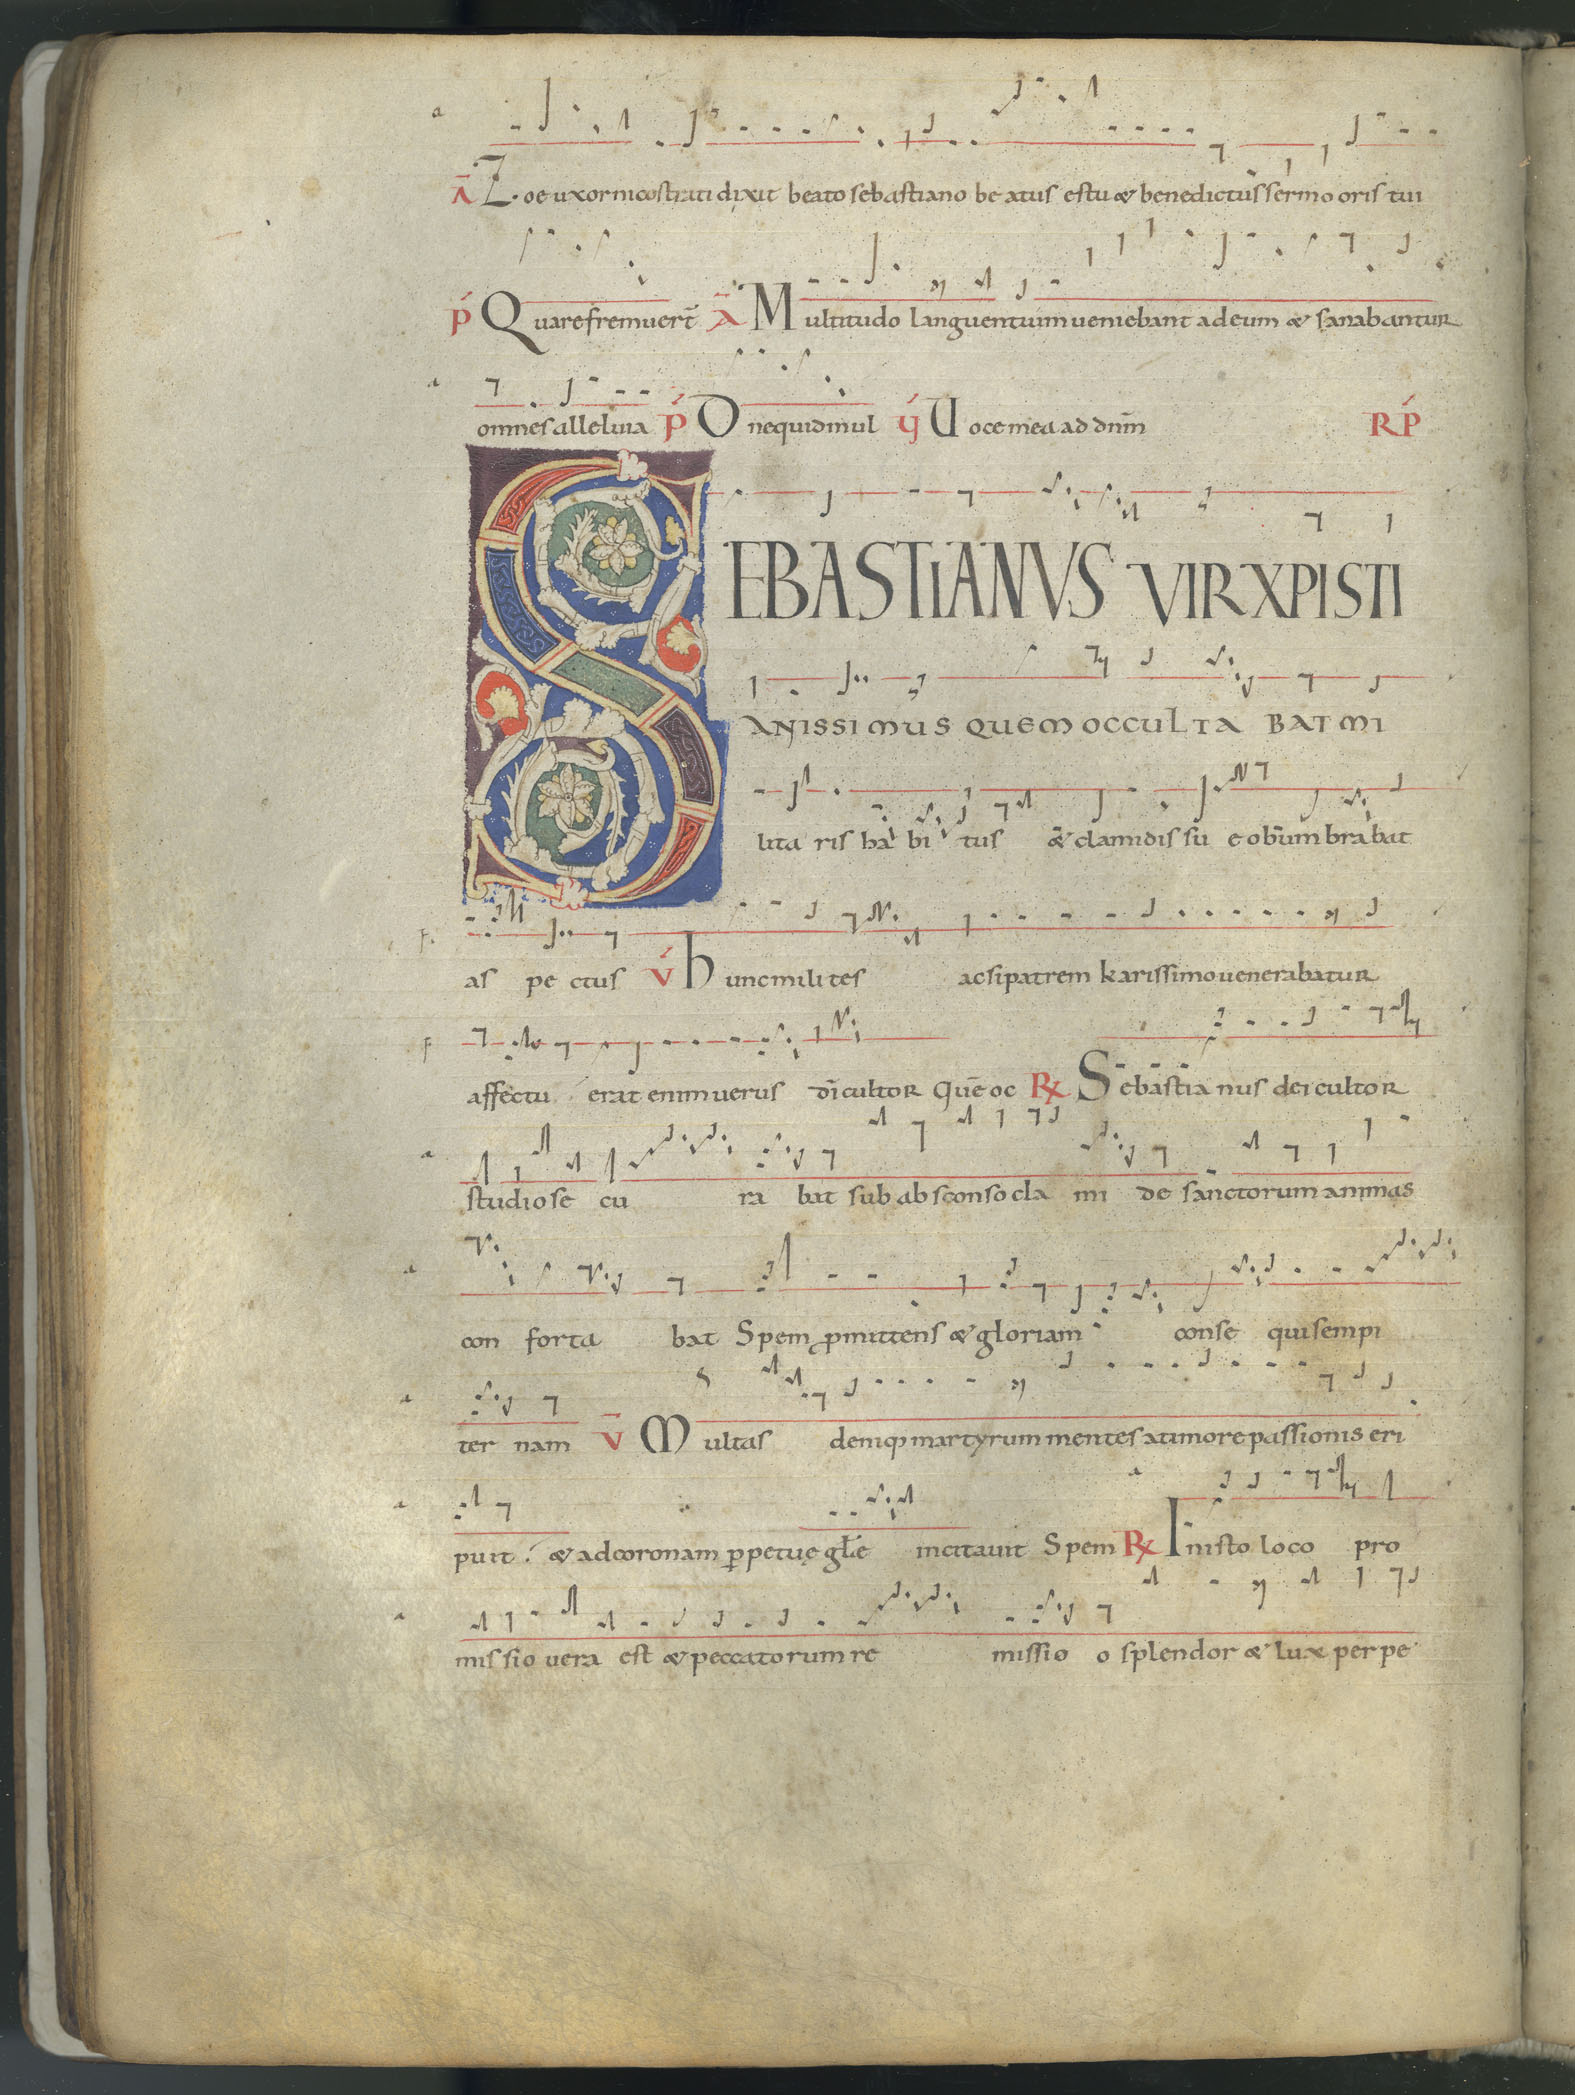 a
A Zoe uxor nicostrati dixit beato sebastiano beatus es tu & benedictus sermo oris tui
P Quare fremuer̄t A Multitudo languentium veniebant ad eum & sanabantur
a
omnes alleluia P Dn̄e quid mul ꝟ Voce mea ad dnm̄ RP
SEBASTIANVS VIR XPISTI
ANISSIMUS QUEM OCCULTA BAT MI
lita ris ha bi tus & clamidis su e obumbrabat
F.
as pe ctus V Hunc milites acsi patrem karissimo venerabatur
F
affectu erat enim verus dī cultor Quē oc R Sebastia nus dei cultor
a
studiose cu ra bat sub absconso cla mi de sanctorum animas
a
con forta bat Spem ꝓmittens & gloriam conse qui sempi
a
ter nam V Multas deniq martyrum mentes a timore passionis eri
a a
puit. & ad coronam ꝑpetuę gl̄e incitavit Spem R In isto loco pro
a
missio vera est & peccatorum re missio o splendor & lux perpe